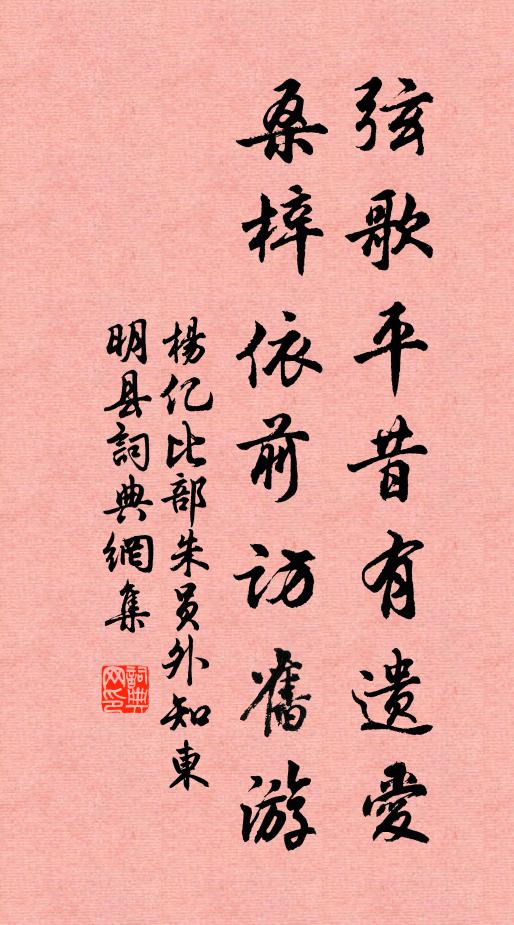 弦歌平昔有遗愛
桑梓依前访舊游
楊亿比部朱员外知東
明县詞典網集
詞典網印